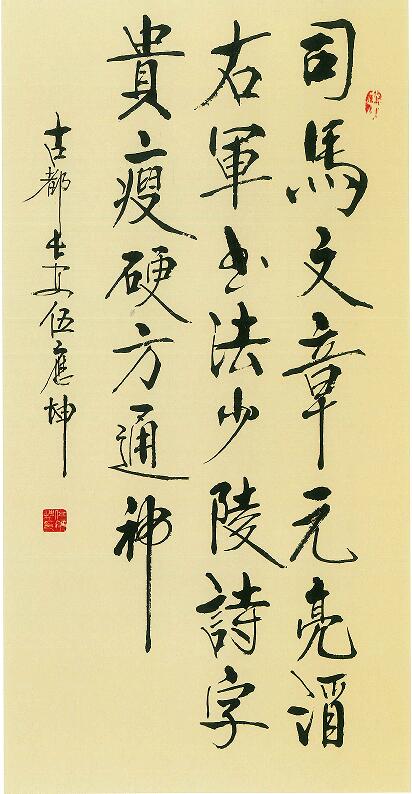 司馬文章元亮酒
右軍書法少陵詩字
貴瘦硬方通神
古都長安伍應坤